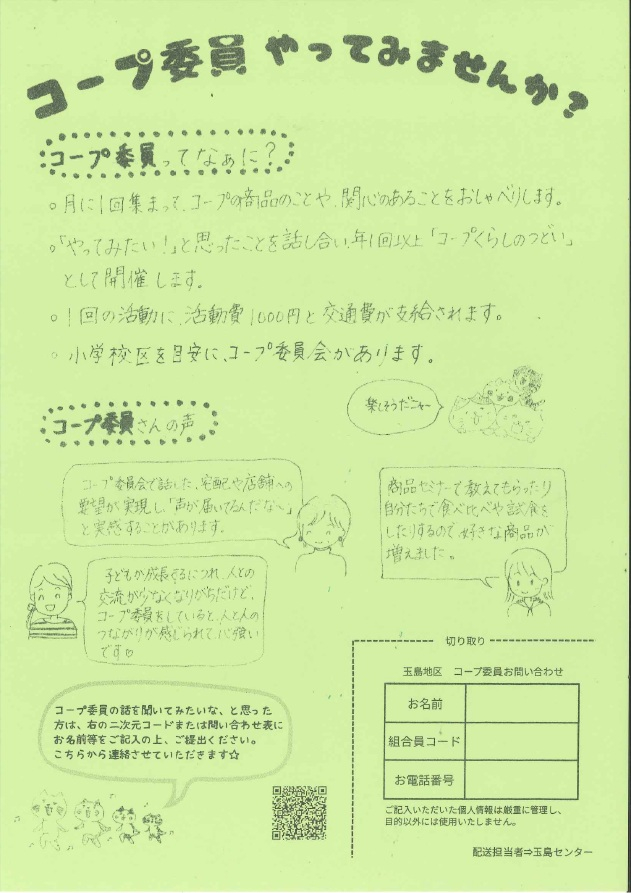 コープ委員やってみませんか？
コープ委員ってなぁに？
○月に1回集まって、コープの商品のことや、関心のあることをおしゃべりします。
○「やってみたい！」と思ったことを話し合い、年1回以上「コープくらしのつどい」
として開催します。
○1回の活動に、活動費1000円と交通費が支給されます。
○小学校区を目安に、コープ委員会があります。
楽しそうだニャー
コープ委員さんの声
コープ委員会で話した、宅配や店舗への
要望が実現し「声が届いてるんだな〜」
と実感することがあります。
商品セミナーで教えてもらったり
自分たちで食べ比べや試食を
したりするので好きな商品が
増えました。
子どもが成長するにつれ、人との
交流が少なくなりがちだけど、
コープ委員をしていると、人と人の
つながりが感じられて心強い
です♡
切り取り
玉島地区　コープ委員お問い合わせ
お名前
組合員コード
お電話番号
ご記入いただいた個人情報は厳重に管理し、
目的以外には使用いたしません。
配送担当者⇒玉島センター
コープ委員の話を聞いてみたいな、と思った
方は、右の二次元コードまたは問い合わせ表に
お名前等をご記入の上、ご提出ください。
こちらから連絡させていただきます☆